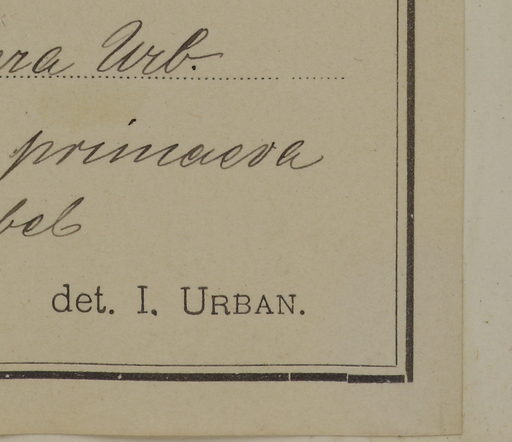 ra Urb.
primaeva
bel
det. I. URBAN.